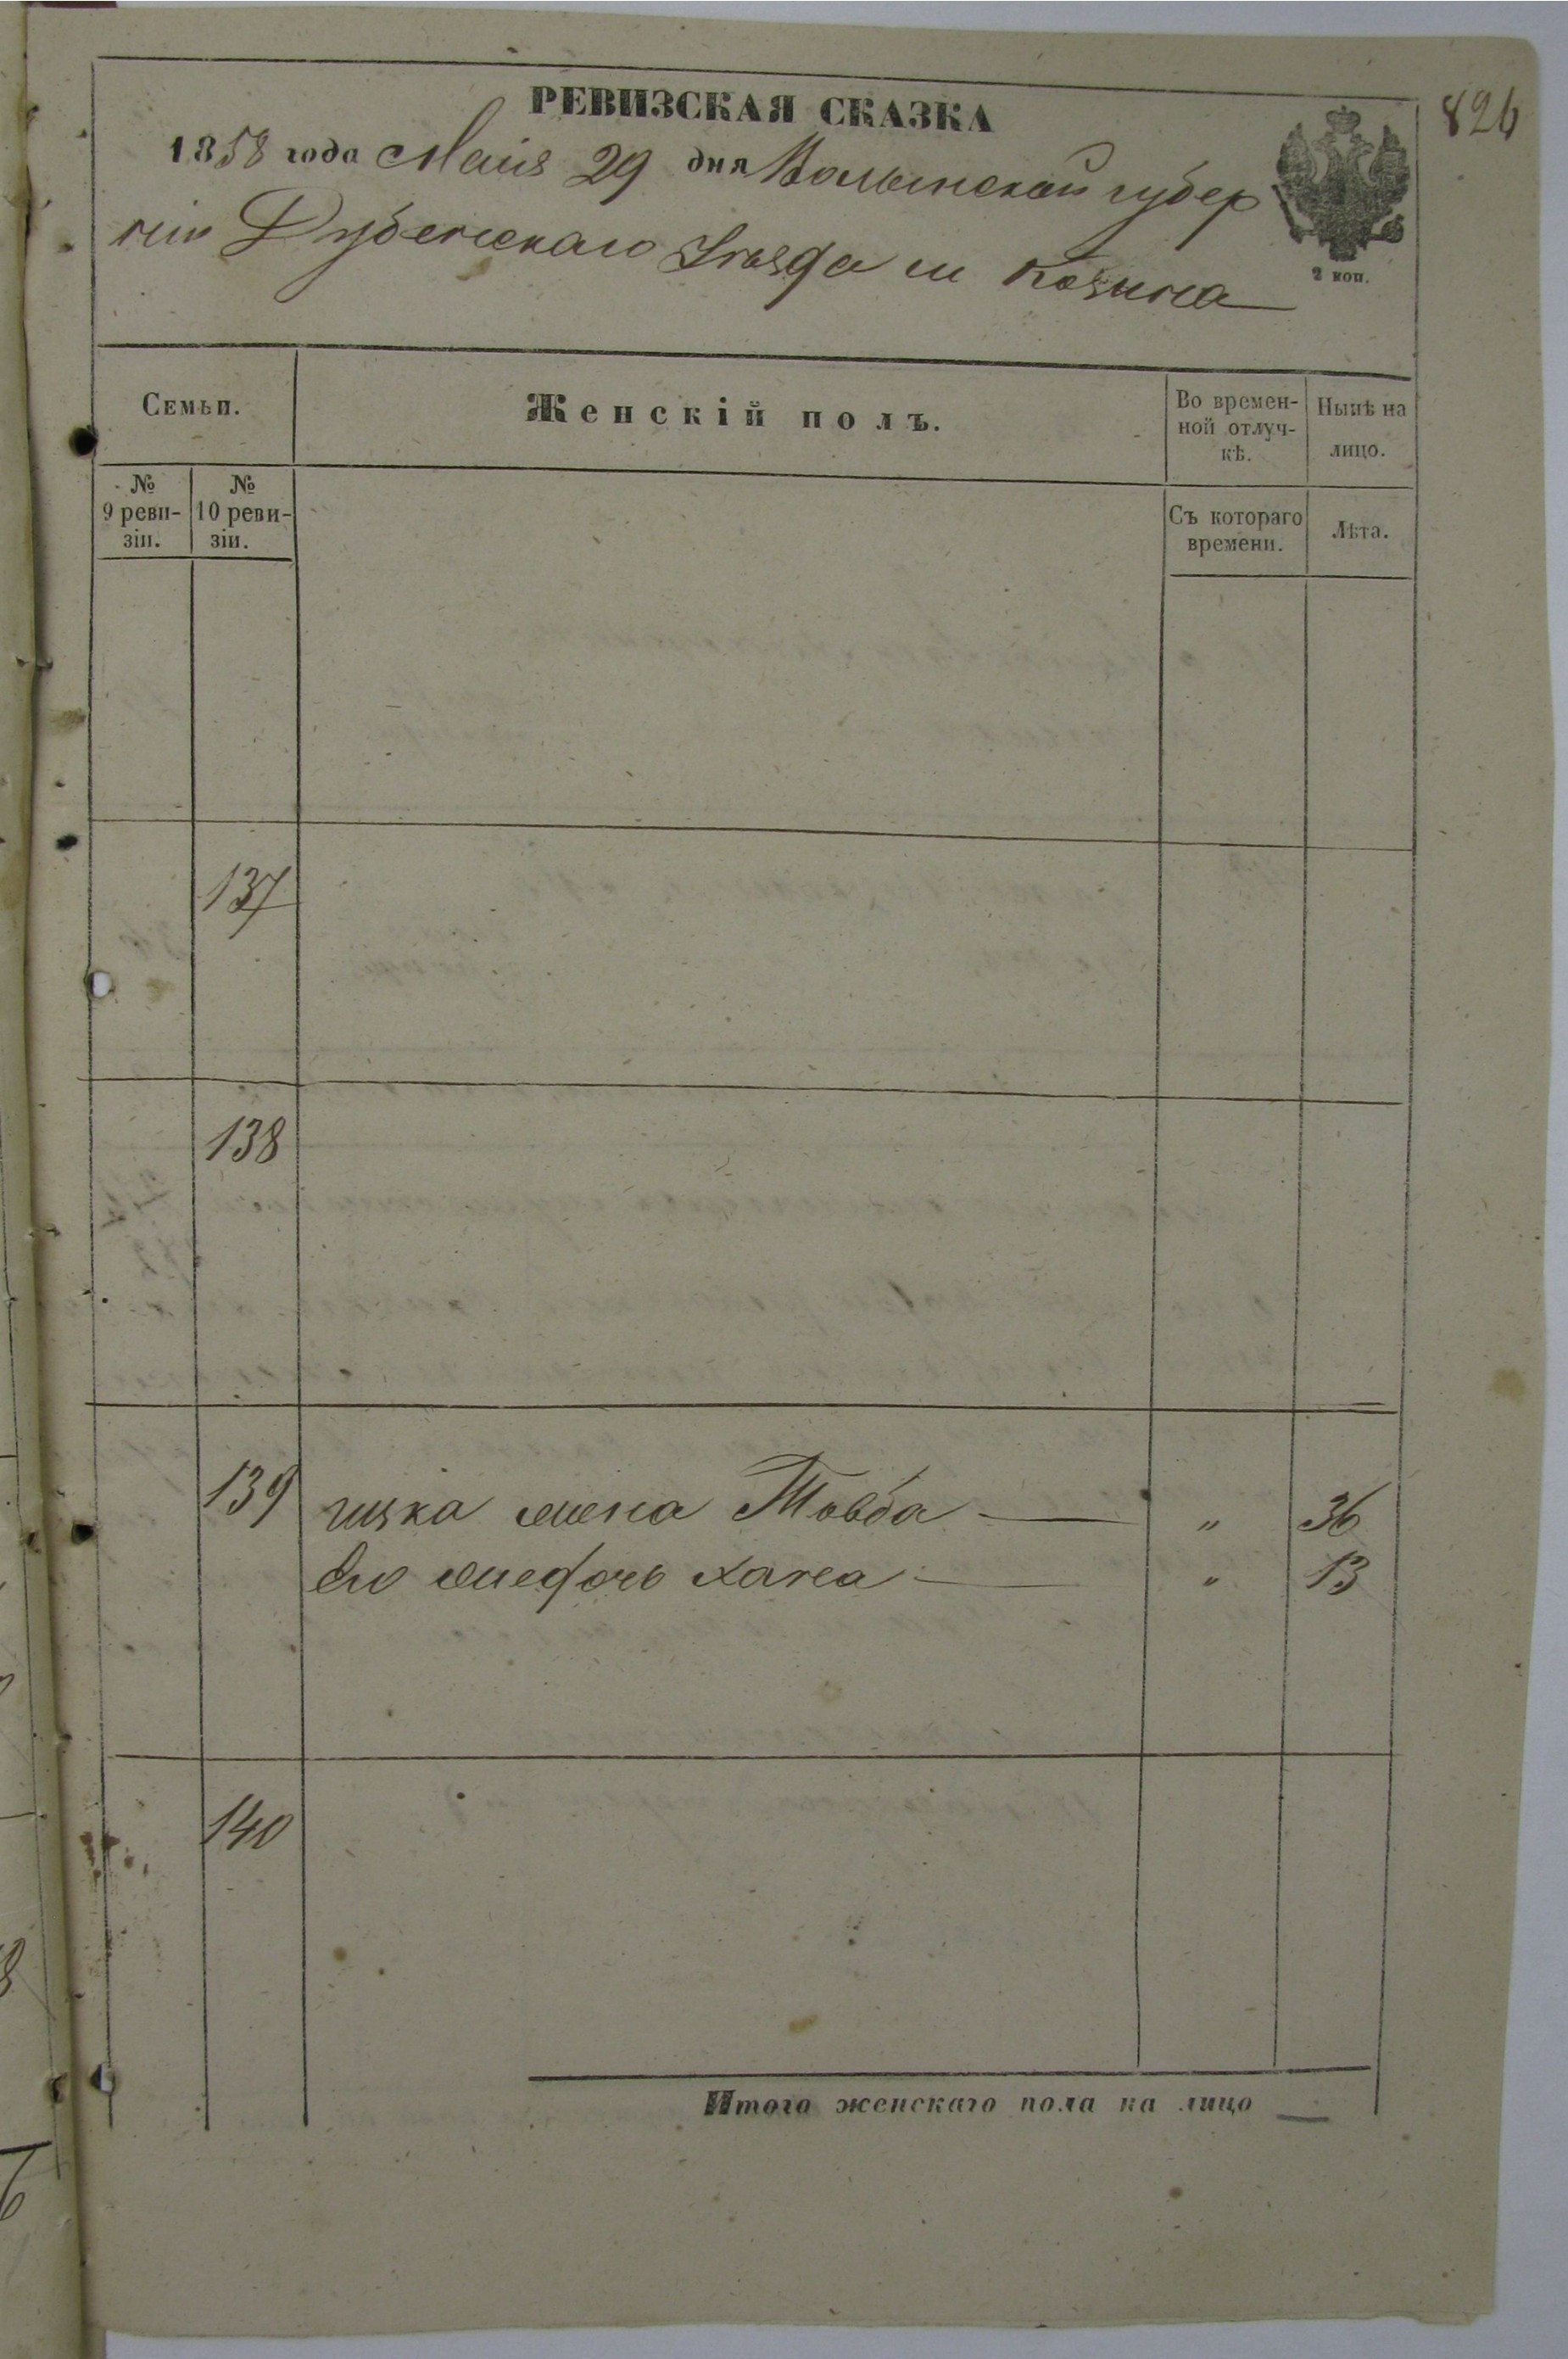 826
РЕВИЗСКАЯ СКАЗКА
1858 года Маія 29 дня Волынской губер
ніи Дубенскаго Уѣзда м Козина
2 коп.
Семьи.
Женскій полъ.
Во времен-
ной отлуч-
кѣ.
Нынѣ на
лицо.
№
9 реви-
зіи.
№
10 реви-
зіи.
Съ котораго
времени.
Лѣта.
137
138
139 жена Товба — " 36
Его дочь Хана — " 13
140
Итого женскаго пола на лицо —